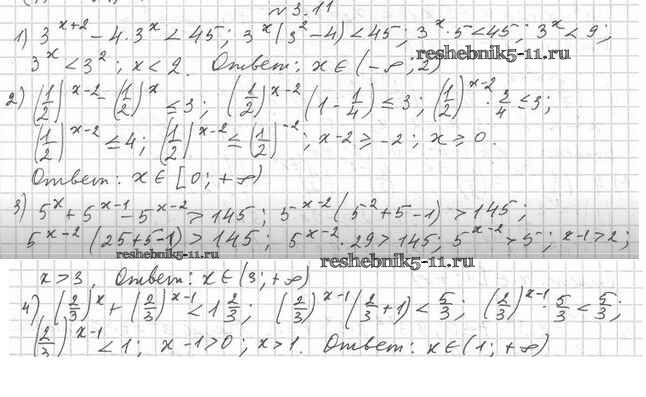 № 3.11
1) 3^{x+2} - 4·3^x < 45; 3^x(3^2-4) < 45; 3^x·5 < 45; 3^x < 9;
reshebnik5-11.ru
3^x < 3^2; x < 2. Ответ: x ∈ (-∞, 2)
2) (1/2)^{x-2} - (1/2)^x ≤ 3; (1/2)^{x-2}(1-1/4) ≤ 3; (1/2)^{x-2}·3/4 ≤ 3;
(1/2)^{x-2} ≤ 4; (1/2)^{x-2} ≤ (1/2)^{-2}; x-2 ≥ -2; x ≥ 0.
Ответ: x ∈ [0; +∞)
3) 5^x + 5^{x-1} - 5^{x-2} > 145; 5^{x-2}(5^2+5-1) > 145;
5^{x-2}(25+5-1) > 145; 5^{x-2}·29 > 145; 5^{x-2} > 5; x-1 > 2;
reshebnik5-11.ru
reshebnik5-11.ru
x > 3. Ответ: x ∈ (3; +∞)
4) (2/3)^x + (2/3)^{x-1} < 1 2/3; (2/3)^{x-1}(2/3+1) < 5/3; (2/3)^{x-1}·5/3 < 5/3;
(2/3)^{x-1} < 1; x-1 > 0; x > 1. Ответ: x ∈ (1; +∞)